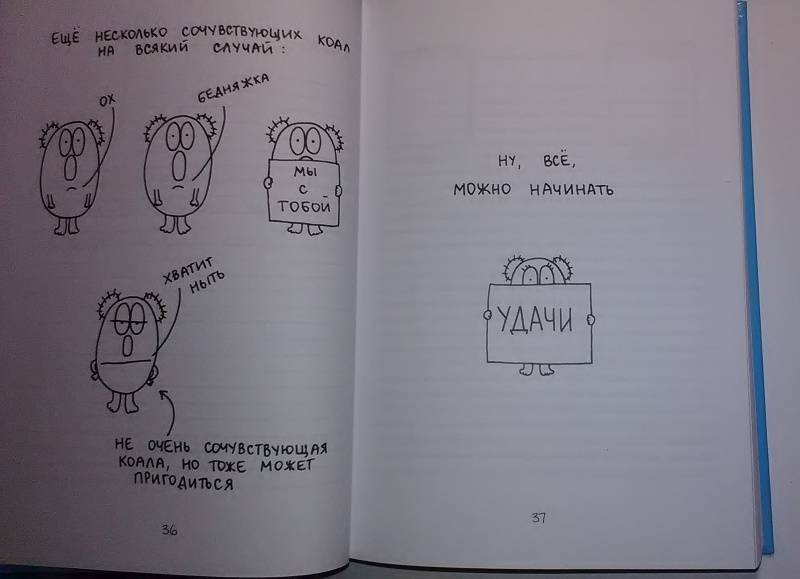 ЕЩЁ НЕСКОЛЬКО СОЧУВСТВУЮЩИХ КОАЛ
НА ВСЯКИЙ СЛУЧАЙ:
ОХ
БЕДНЯЖКА
МЫ
С
ТОБОЙ
ХВАТИТ
НЫТЬ
НЕ ОЧЕНЬ СОЧУВСТВУЮЩАЯ
КОАЛА, НО ТОЖЕ МОЖЕТ
ПРИГОДИТЬСЯ
36
НУ, ВСЁ,
МОЖНО НАЧИНАТЬ
УДАЧИ
37